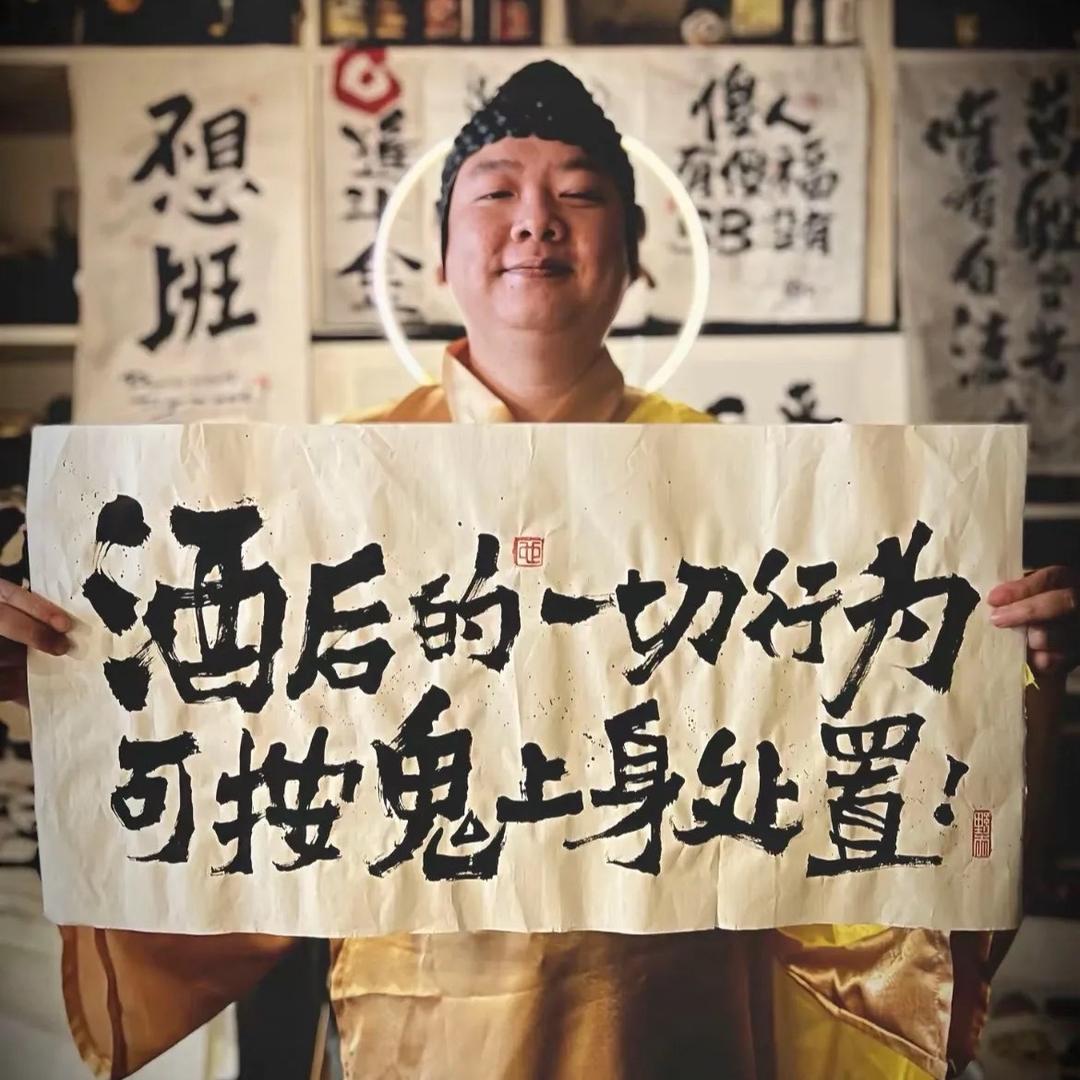 酒后的一切行为
可按鬼上身处置！
想
班
傻人
有傻福